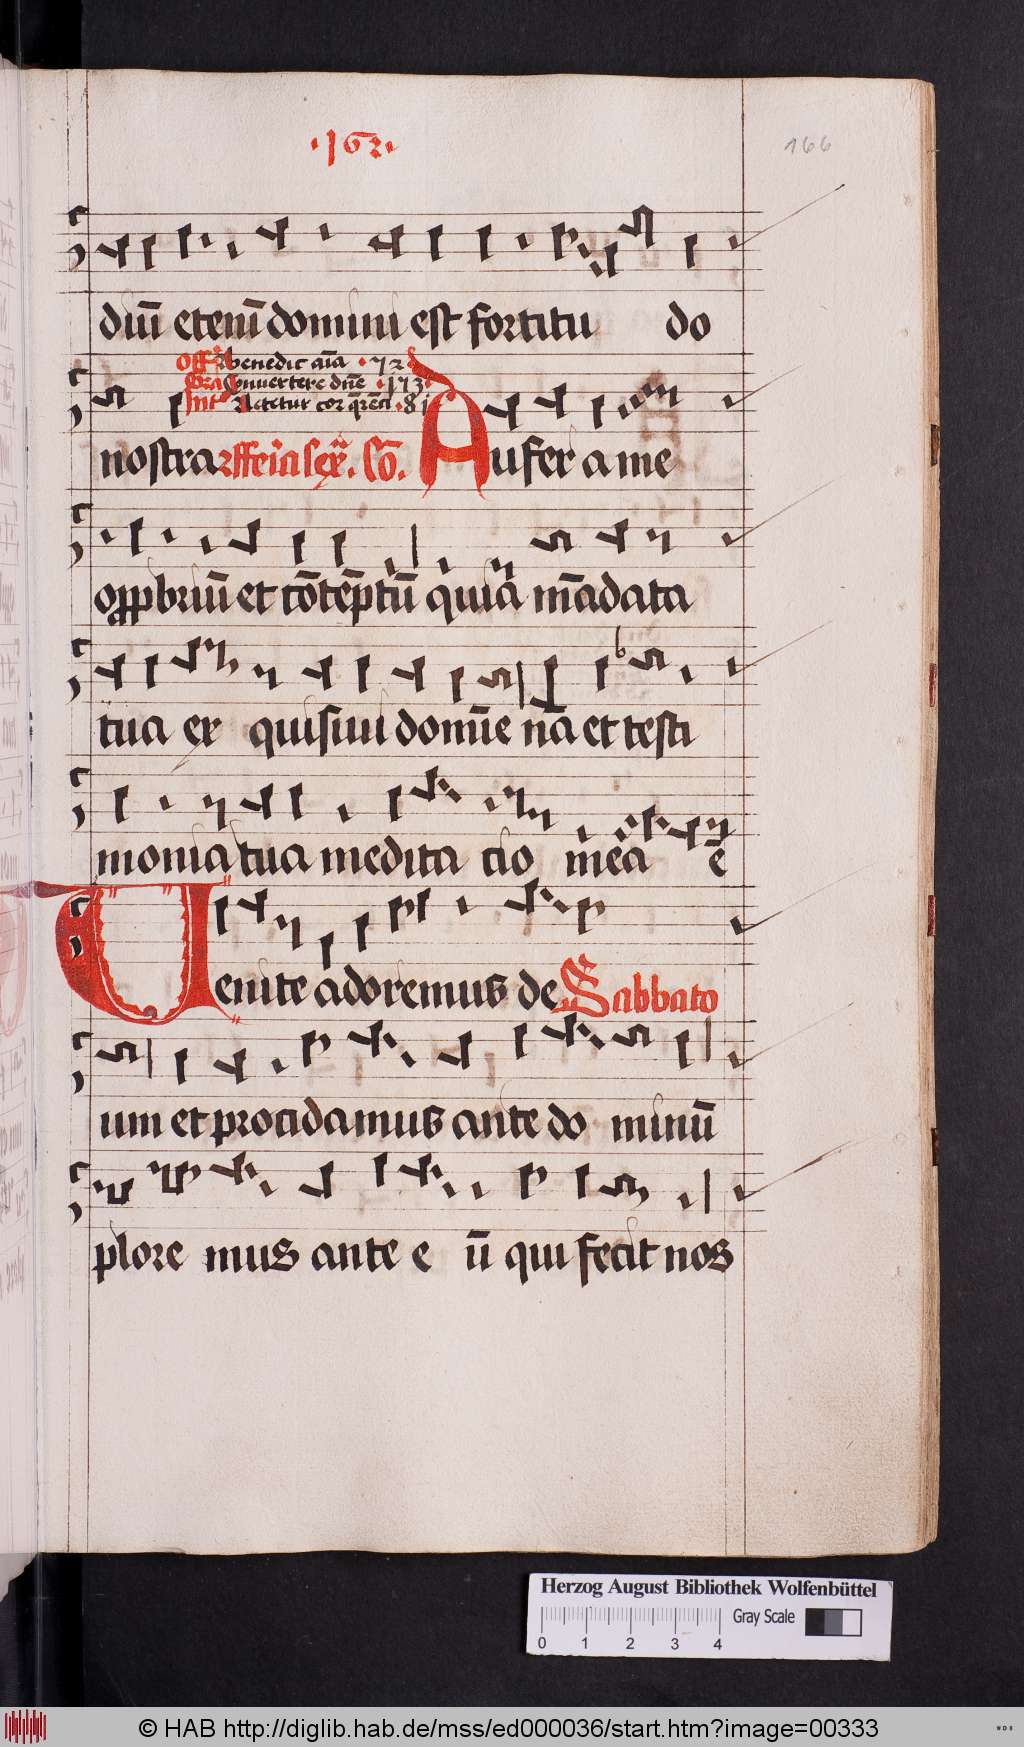 ·162·
166
diū eteniꝫ domini est fortitu do
Off Benedic aīa · 72
Gra Convertere dn̄e · 173
Int Letetur cor q̄rēti · 81
nostra ff feria sex. Co. Aufer a me
opp̄briū et cōtēptū quia mādata
tua ex quisivi domīe nā et testi
monia tua medita cio mea ē
Venite adoremus de Sabbato
um et procidamus ante do minū
plore mus ante e ū qui fecit nos
Herzog August Bibliothek Wolfenbüttel
Gray Scale
0 1 2 3 4
© HAB http://diglib.hab.de/mss/ed000036/start.htm?image=00333